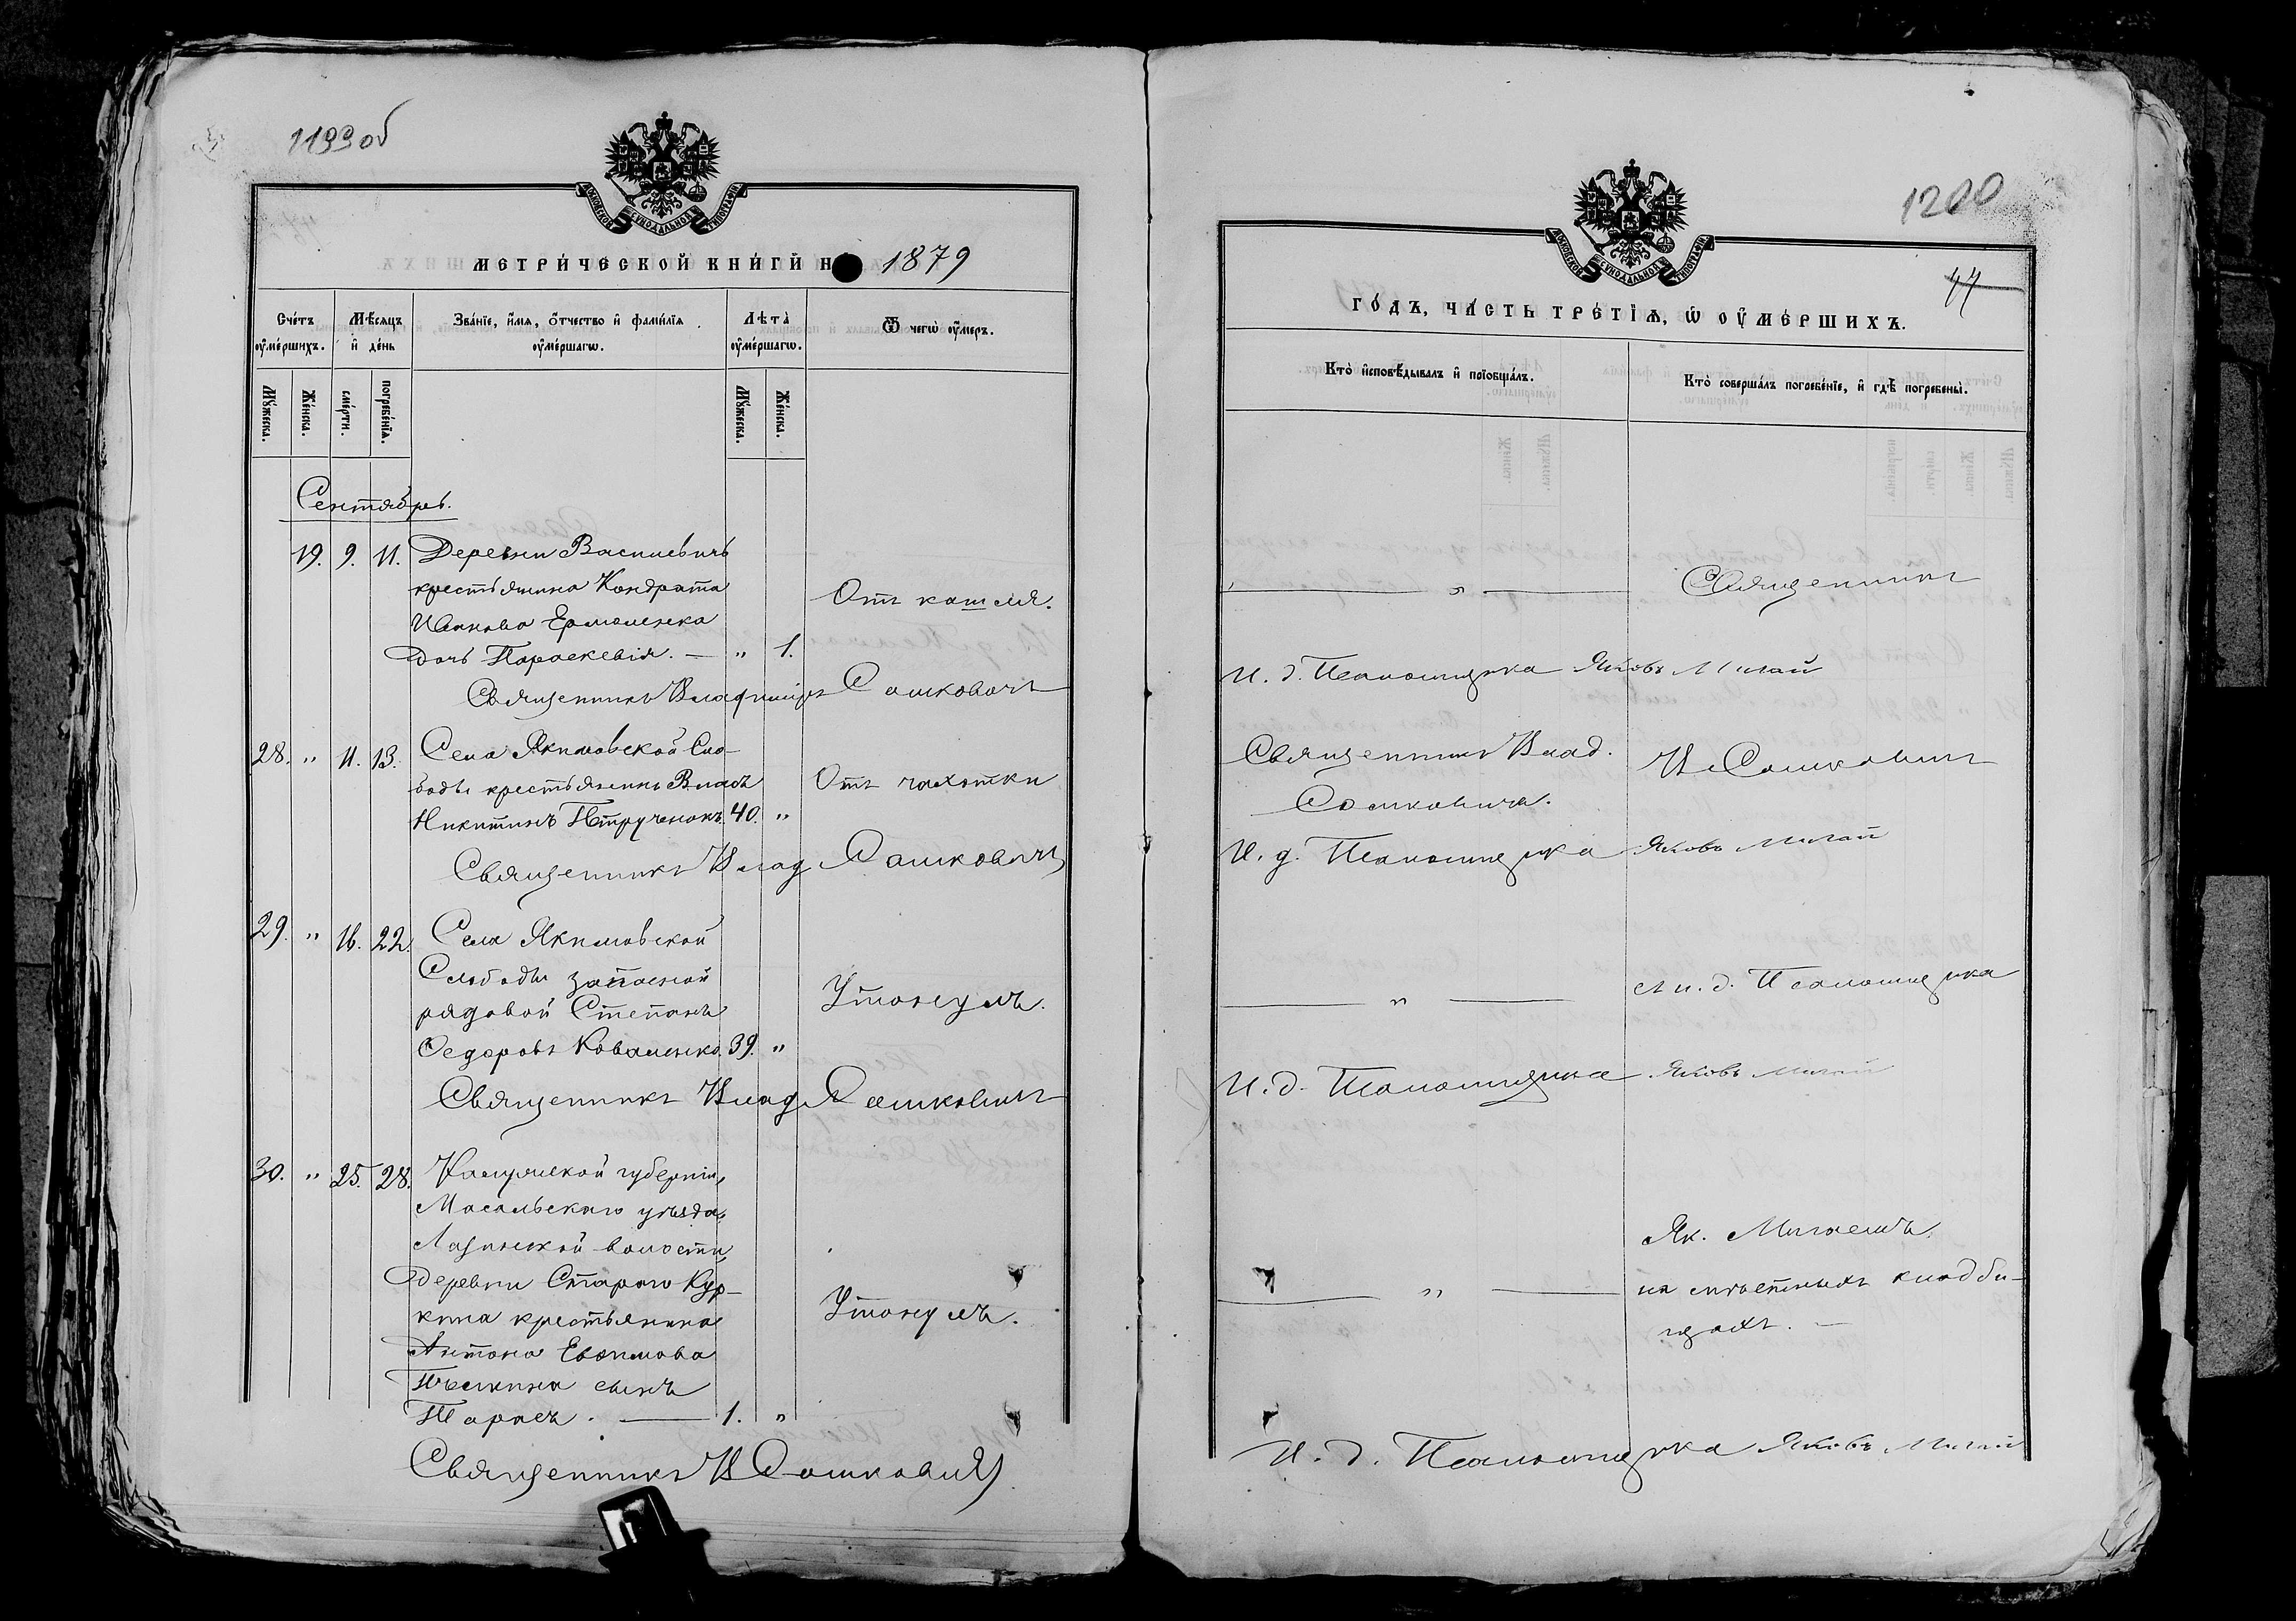 1199 об
МОСКОВСКОЙ СѴНОДАЛЬНОЙ ТИПОГРАФІИ
МЕТРИ́ЧЕСКОЙ КНИ́ГИ Н 1879
Сче́тъ оу҆ме́ршихъ.
Мѣ́сяцъ и҆ де́нь
Зва́нїе, и҆́мя, ѻ҆́тчество и҆ фами́лїя оу҆ме́ршагѡ.
Лѣ́та оу҆ме́ршагѡ.
Ѿ чегѡ̀ оу҆́меръ.
Мꙋ́жеска.
Же́нска.
сме́рти.
погребе́нїѧ.
Мꙋ́жеска.
Же́нска.
Сентябрь.
19. 9. 11. Деревни Васильевичъ
крестьянина Кондрата
Иванова Ермоленка
дочь Параскевія. — „ 1.
Отъ кашля.
Священникъ Владиміръ Сошковичъ
28. „ 11. 13. Села Якимовской Сло-
боды крестьянинъ Власъ
Никитинъ Петрученокъ. 40. „
Отъ чахотки
Священникъ Влад Сошковичъ
29. „ 16. 22. Села Якимовской
Слободы запасной
рядовой Степанъ
Ѳедоровъ Коваленко. 39. „
Утонулъ.
Священникъ Влад Сошковичъ
30. „ 25. 28. Калужской губерніи,
Масальскаго уѣзда,
Лазинской волости,
деревни Стараго Кур-
кина крестьянина
Антона Евѳимова
сынъ
Тарасъ. — 1. „
Утонулъ.
Священникъ В Сошковичъ
1200
44
ГО́ДЪ, ЧА́СТЬ ТРЕ́ТЇѦ, Ѡ҆ ОУ҆МЕ́РШИХЪ.
Кто̀ и҆сповѣ́дывалъ и҆ прїобща́лъ.
Кто̀ соверша́лъ погребе́нїе, и҆ гдѣ̀ погребены̀.
— „ —
Священникъ
И. д. Псаломщика Яковъ Мигай
Священникъ Влад.
Сошковичъ.
В Сошковичъ
И. д. Псаломщика Яковъ Мигай
— „ —
съ и. д. Псаломщика
И. д. Псаломщика Яковъ Мигай
Як. Мигаемъ.
— „ —
на мѣстныхъ кладби-
щахъ. —
И. д. Псаломщика Яковъ Мигай